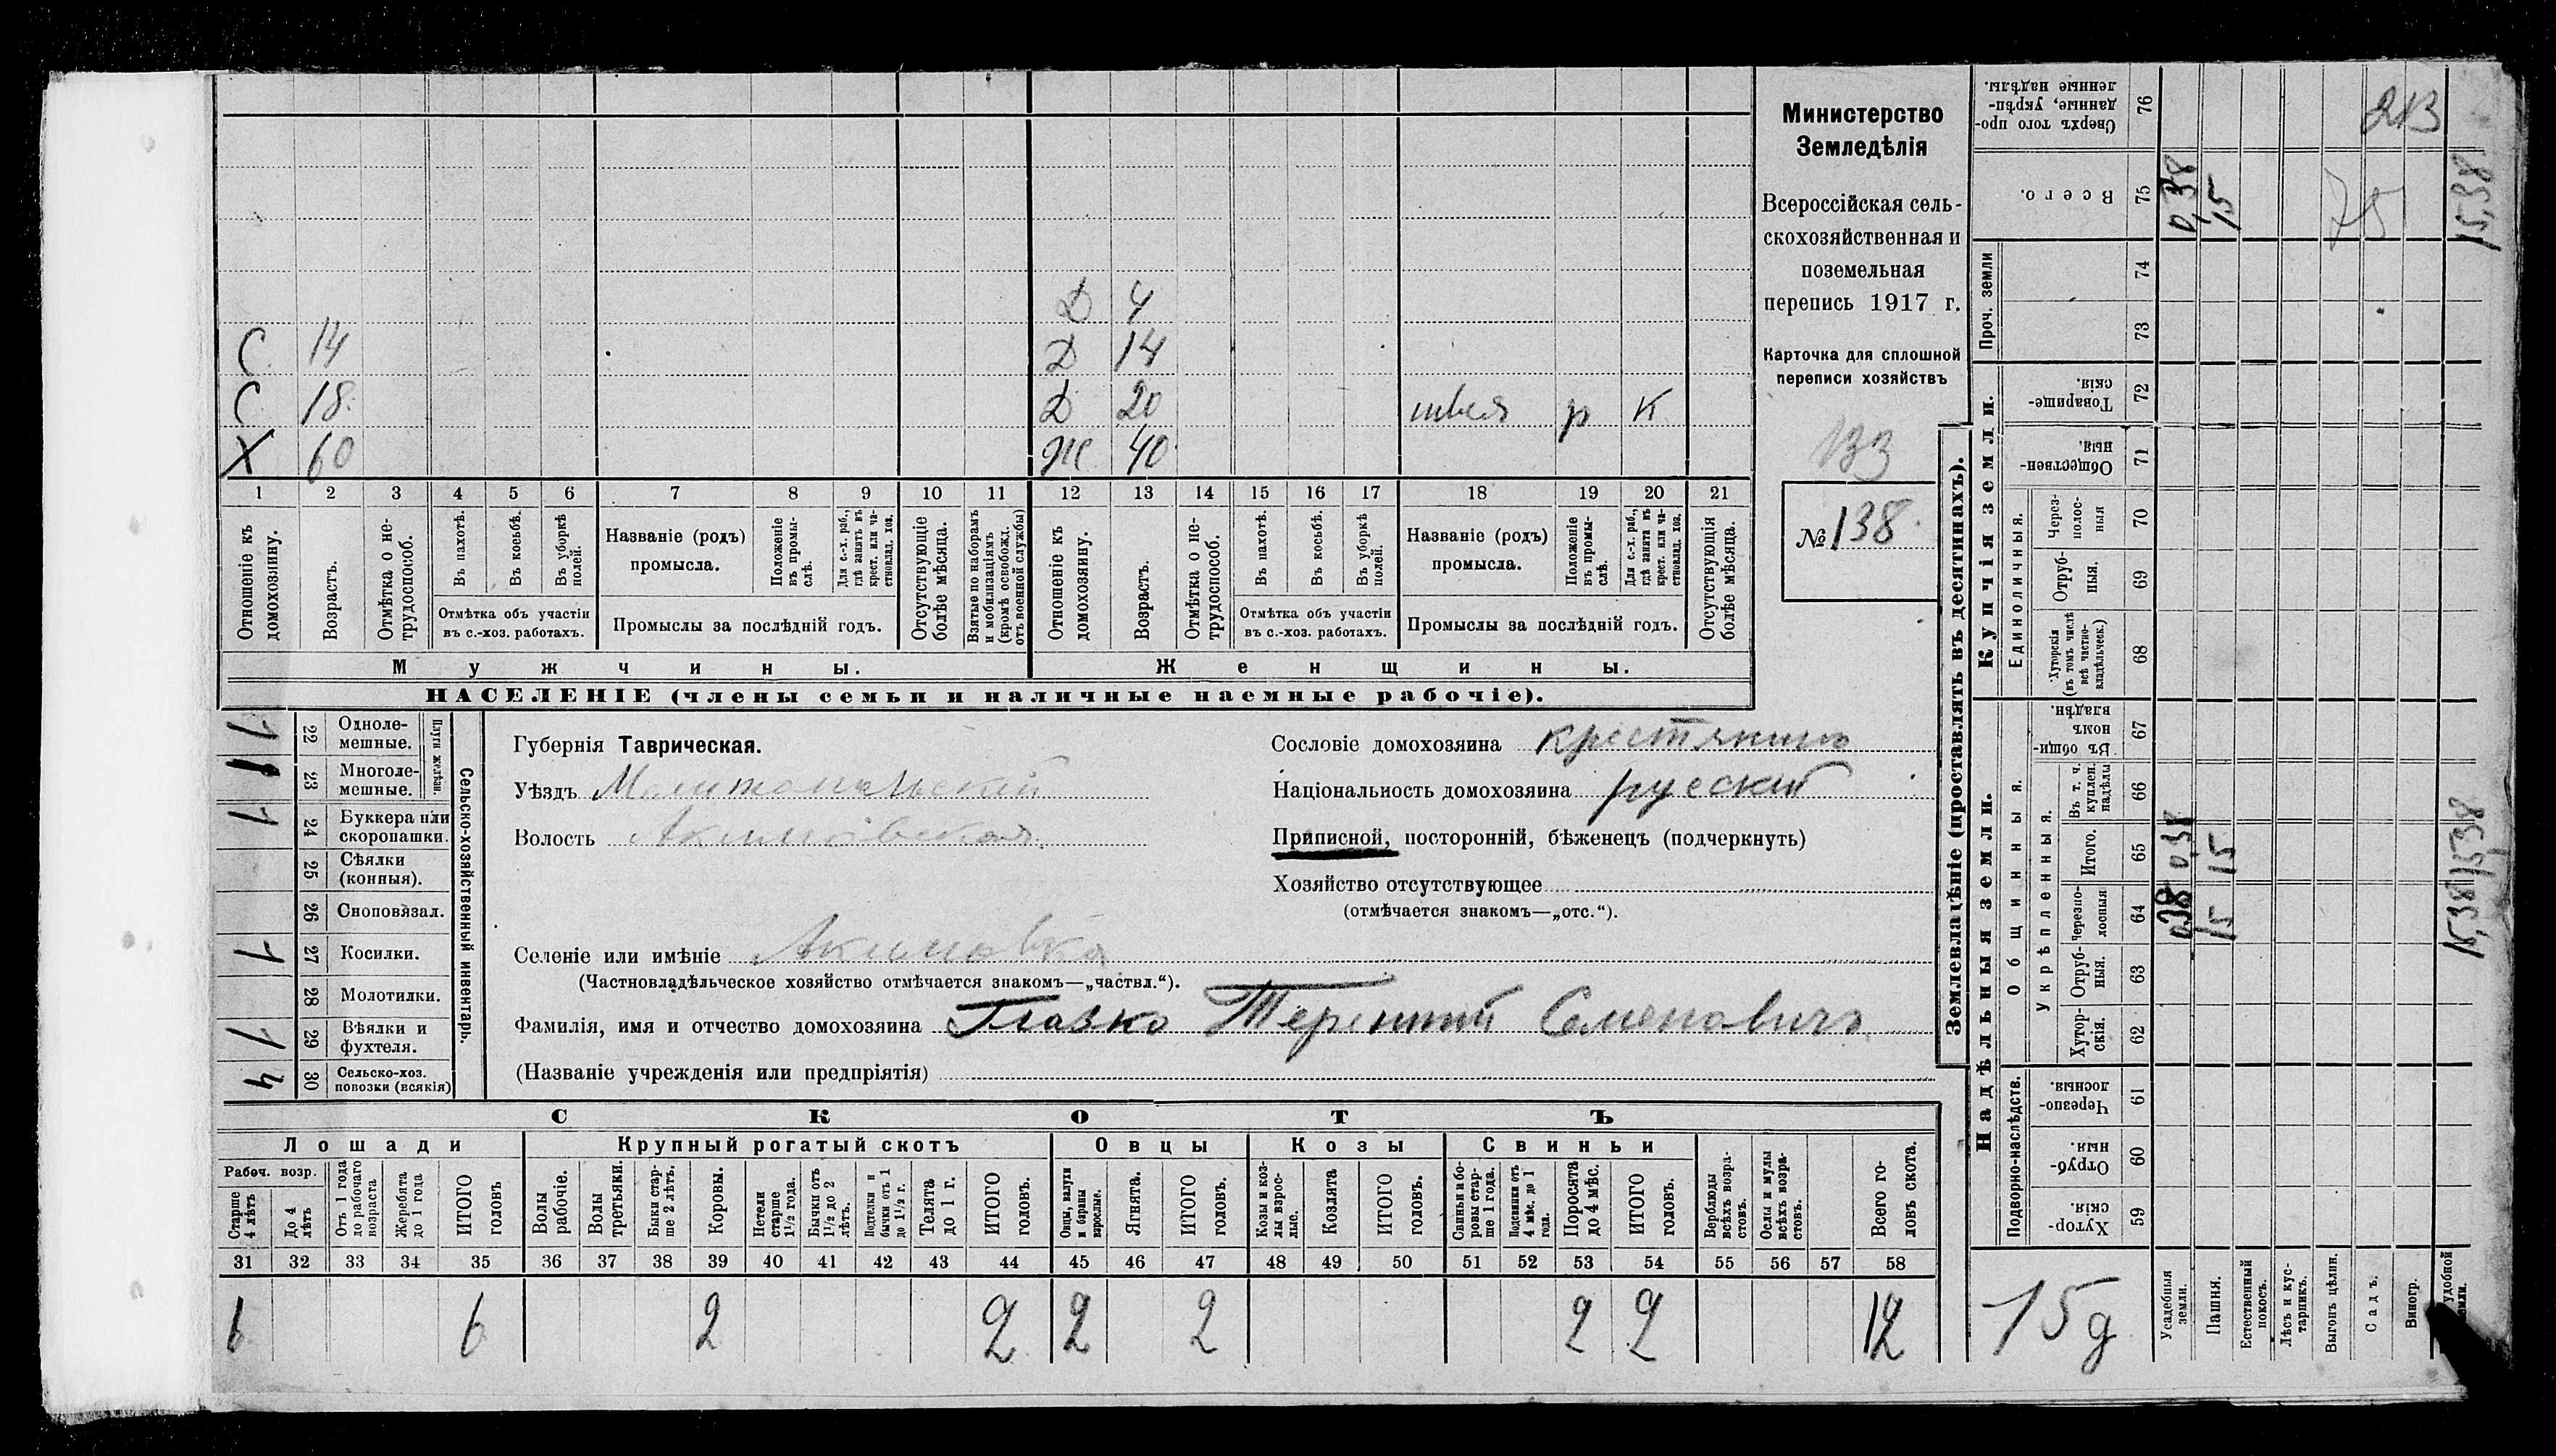 Министерство
Земледѣлія
Всероссійская сель-
скохозяйственная и
поземельная
перепись 1917 г.
Карточка для сплошной
переписи хозяйствъ
133
№ 138.
Д 4
С 14 Д 14
С 18. Д 20 швея р К
Х 60 Ж 40
1 2 3 4 5 6 7 8 9 10 11 12 13 14 15 16 17 18 19 20 21
Отношеніе къ домохозяину.
Возрастъ.
Отмѣтка о не-трудоспособ.
Въ пахотѣ.
Въ косьбѣ.
Въ уборкѣ полей.
Отмѣтка объ участіи
въ с.-хоз. работахъ.
Названіе (родъ)
промысла.
Положеніе въ промы-слѣ.
Для с.-х. раб., гдѣ занятъ въ крест. или ча-стновлад. хоз.
Промыслы за послѣдній годъ.
Отсутствующіе болѣе мѣсяца.
Взятые по наборамъ и мобилизаціямъ (кромѣ освобожд. отъ военной службы)
Отношеніе къ домохозяину.
Возрастъ.
Отмѣтка о не-трудоспособ.
Въ пахотѣ.
Въ косьбѣ.
Въ уборкѣ полей.
Отмѣтка объ участіи
въ с.-хоз. работахъ.
Названіе (родъ)
промысла.
Положеніе въ промы-слѣ.
Для с.-х. раб., гдѣ занята въ крест. или ча-стновлад. хоз.
Промыслы за послѣдній годъ.
Отсутствующія болѣе мѣсяца.
Мужчины. Женщины.
НАСЕЛЕНІЕ (члены семьи и наличные наемные рабочіе).
Сельско-хозяйственный инвентарь.
Плуги желѣзн.
1 22 Одноле-мешные.
1 23 Многоле-мешные.
1 24 Буккера или скоропашки.
25 Сѣялки (конныя).
26 Сноповязал.
1 27 Косилки.
28 Молотилки.
1 29 Вѣялки и фухтеля.
4 30 Сельско-хоз. повозки (всякія)
Губернія Таврическая.
Уѣздъ Мелитопольскій
Волость Акимовская
Селеніе или имѣніе Акимовка
(Частновладѣльческое хозяйство отмѣчается знакомъ—„частвл.“).
Фамилія, имя и отчество домохозяина Глазко Терентій Семеновичъ
(Названіе учрежденія или предпріятія)
Сословіе домохозяина крестянинъ
Національность домохозяина русскій
Приписной, посторонній, бѣженецъ (подчеркнуть)
Хозяйство отсутствующее
(отмѣчается знакомъ—„отс.“).
СКОТЪ
Лошади Крупный рогатый скотъ Овцы Козы Свиньи
Рабоч. возр.
Старше 4 лѣтъ
До 4 лѣтъ
Отъ 1 года до рабочаго возраста
Жеребята до 1 года
ИТОГО головъ
Волы рабочіе.
Волы третьяки.
Быки стар-ше 2 лѣтъ.
Коровы.
Нетели старше 1½ года.
Бычки отъ 1½ до 2 лѣтъ.
Подтелки и бычки отъ 1 до 1½ г.
Телята до 1 г.
ИТОГО головъ.
Овцы, валухи и бараны взрослые.
Ягнята.
ИТОГО головъ.
Козы и коз-лы взрос-лые.
Козлята
ИТОГО головъ.
Свиньи и бо-ровы стар-ше 1 года.
Подсвинки отъ 4 мѣс. до 1 года.
Поросята до 4 мѣс.
ИТОГО головъ.
Верблюды всѣхъ возра-стовъ.
Ослы и мулы всѣхъ возра-стовъ.
Всего го-ловъ скота.
31 32 33 34 35 36 37 38 39 40 41 42 43 44 45 46 47 48 49 50 51 52 53 54 55 56 57 58
6 6 2 2 2 2 2 2 12
Землевладѣніе (проставлять въ десятинахъ).
Надѣльныя земли. Купчія земли. Проч. земли
Подворно-наслѣдств.
Общинныя.
Укрѣпленныя.
Единоличныя.
Хутор-скія. 59
Отруб-ныя. 60
Черезпо-лосныя. 61
Хутор-скія. 62
Отруб-ныя. 63
Черезпо-лосныя 64 0,38 15 15,38
Итого. 65 0,38 15 15,38
Въ т. ч. куплен. надѣлы 66
Въ общи-номъ владѣн. 67
Хуторскія (въ томъ числѣ всѣ частно-владѣльческ.) 68
Отруб-ныя. 69
Через-полос-ныя 70
Обществен-ныя. 71
Товарище-скія. 72
73
74
Всего. 75 0,38 15 15,38
Сверхъ того про-данные, укрѣп-ленные надѣлы. 76
213
75
15 д
Усадебныя земли.
Пашня.
Естественный покосъ.
Лѣсъ и кус-тарникъ.
Выгонъ цѣлин.
Садъ.
Виногр.
удобной земли.